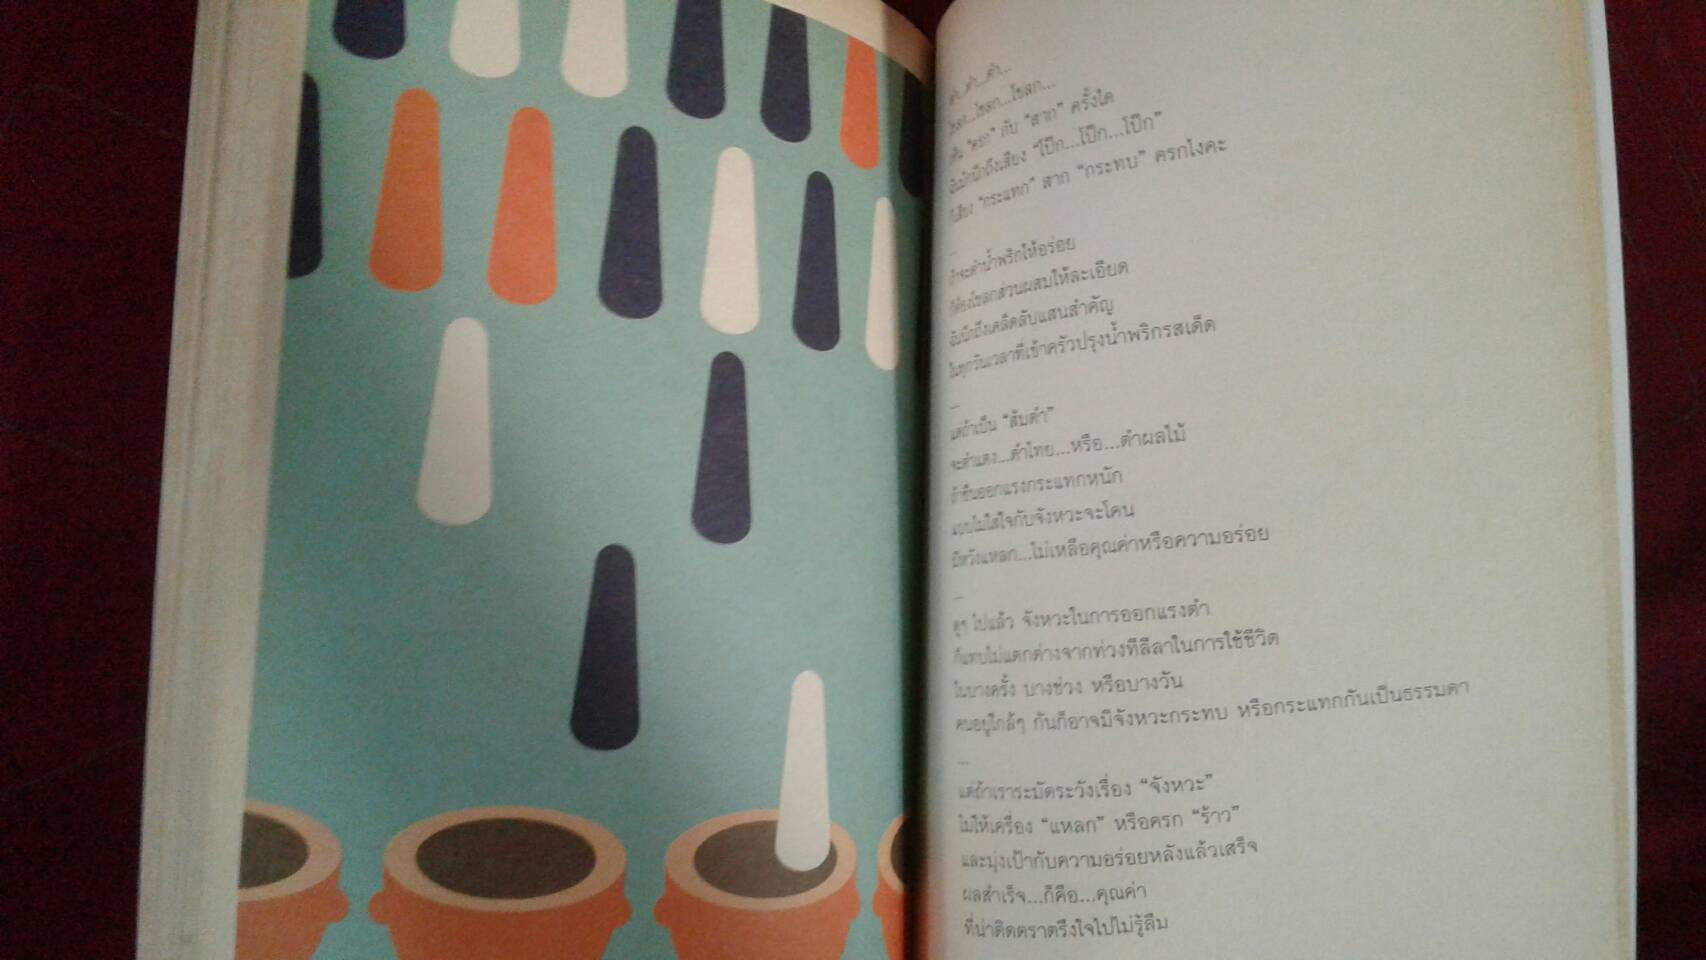 ตำ...ตำ...ตำ...
โขลก...โขลก...โขลก...
เห็น “ครก” กับ “สาก” ครั้งใด
ฉันมักนึกถึงเสียง “โป๊ก...โป๊ก...โป๊ก”
ก็เสียง “กระแทก” สาก “กระทบ” ครกไงคะ
...
ถ้าจะตำน้ำพริกให้อร่อย
ก็ต้องโขลกส่วนผสมให้ละเอียด
ฉันนึกถึงเคล็ดลับแสนสำคัญ
ในทุกวันเวลาที่เข้าครัวปรุงน้ำพริกรสเด็ด
...
แต่ถ้าเป็น “ส้มตำ”
จะตำแตง...ตำไทย...หรือ...ตำผลไม้
ถ้าขืนออกแรงกระแทกหนัก
แบบไม่ใส่ใจกับจังหวะจะโคน
มีหวังแหลก...ไม่เหลือคุณค่าหรือความอร่อย
...
ดูๆ ไปแล้ว จังหวะในการออกแรงตำ
ก็แทบไม่แตกต่างจากท่วงทีลีลาในการใช้ชีวิต
ในบางครั้ง บางช่วง หรือบางวัน
คนอยู่ใกล้ๆ กันก็อาจมีจังหวะกระทบ หรือกระแทกกันเป็นธรรมดา
...
แต่ถ้าเราระมัดระวังเรื่อง “จังหวะ”
ไม่ให้เครื่อง “แหลก” หรือครก “ร้าว”
และมุ่งเป้ากับความอร่อยหลังแล้วเสร็จ
ผลสำเร็จ...ก็คือ...คุณค่า
ที่น่าติดตราตรึงใจไปไม่รู้ลืม